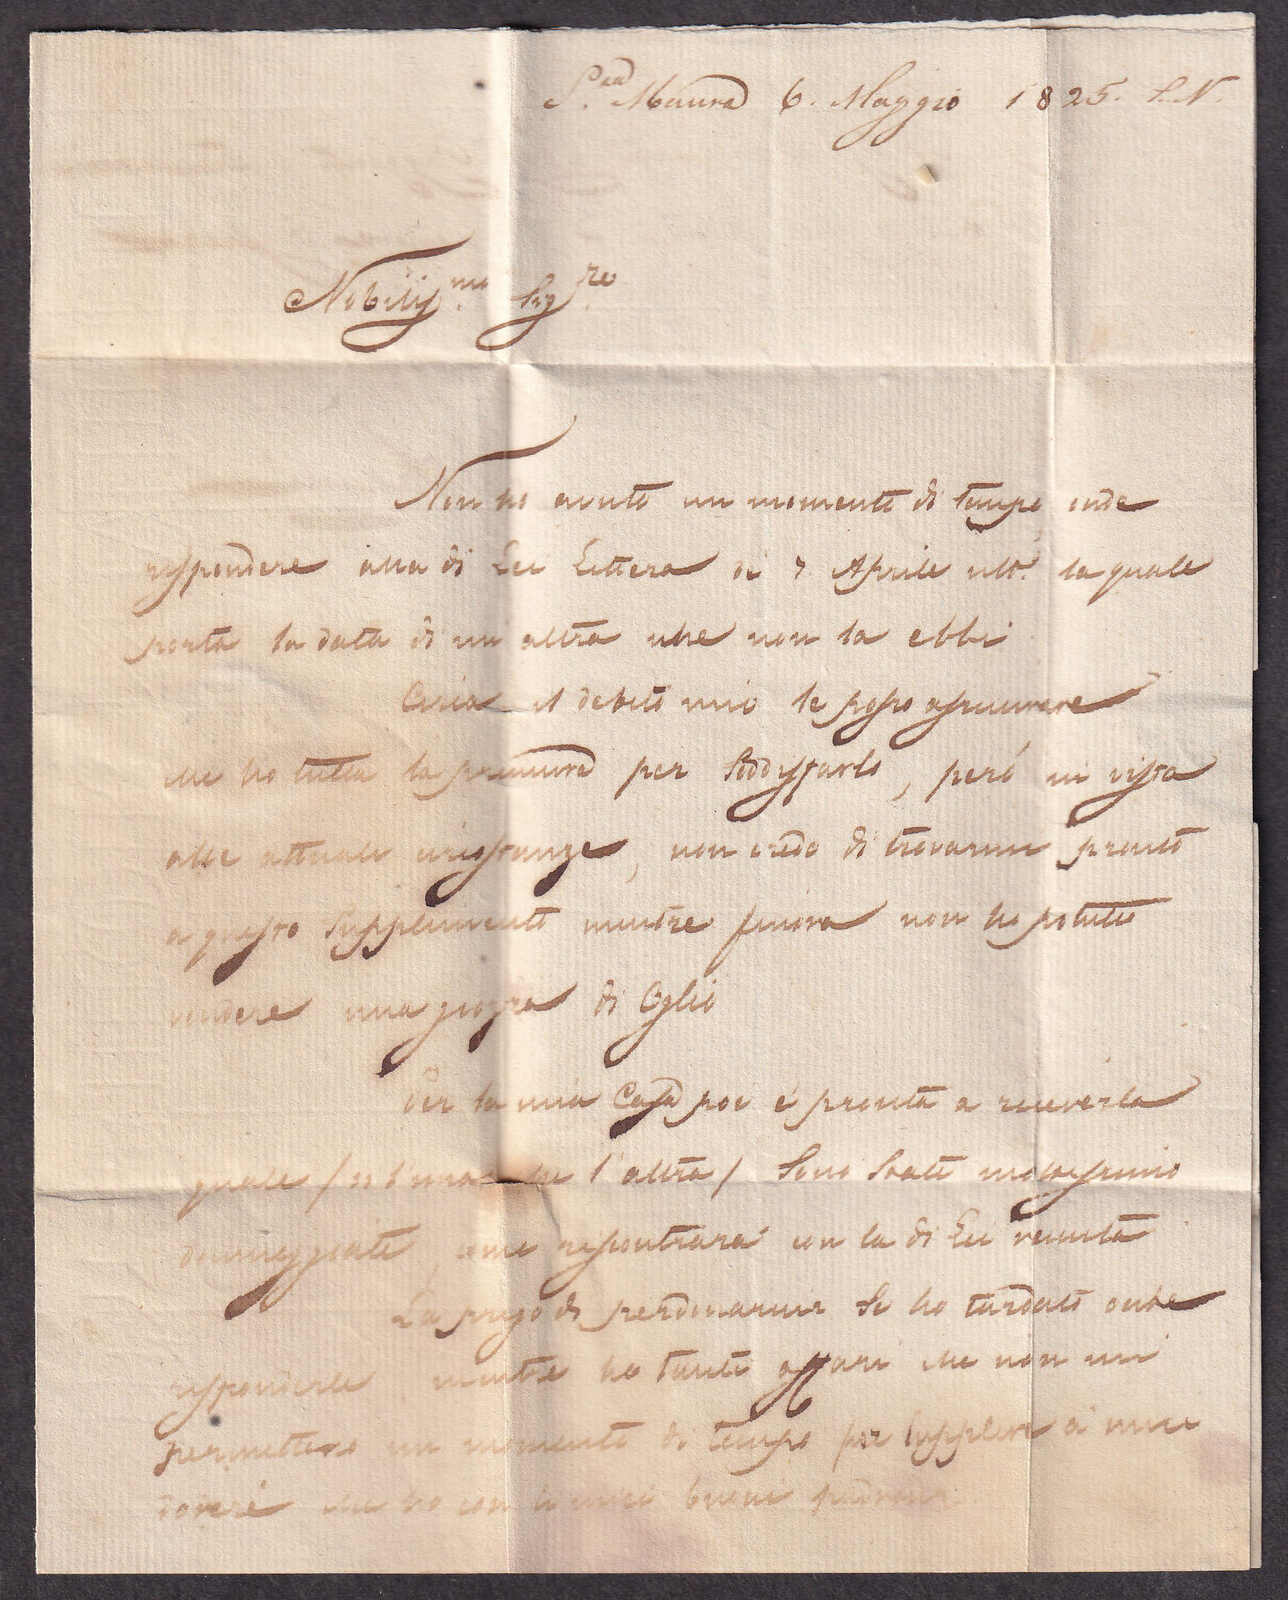 S.ta Maura 6. Maggio 1825. S.N.
Nobiliss.mo Sig.re
Non ho avuto un momento di tempo onde
rispondere alla di Lei Lettera di 7 Aprile ult.o la quale
porta la data di un altra che non la ebbi
Circa il debito mio le posso assicurare
che ho tutta la premura per Sodisfarlo, però in vista
alle attuali circostanze, non credo di trovarmi pronto
a questo Supplimento mentre finora non ho potuto
vendere una giozza di Oglio
Per la mia Casa poi è pronta a riceverla
quale / sì l'una che l'altra / Sono State moltissimo
danneggiate, come riscontrarà con la di Lei venuta
La prego di perdonarmi Se ho tardato onde
risponderle mentre ho tanti affari che non mi
permettono un momento di tempo per Supplire a miei
doveri che ho con li miei buoni padroni